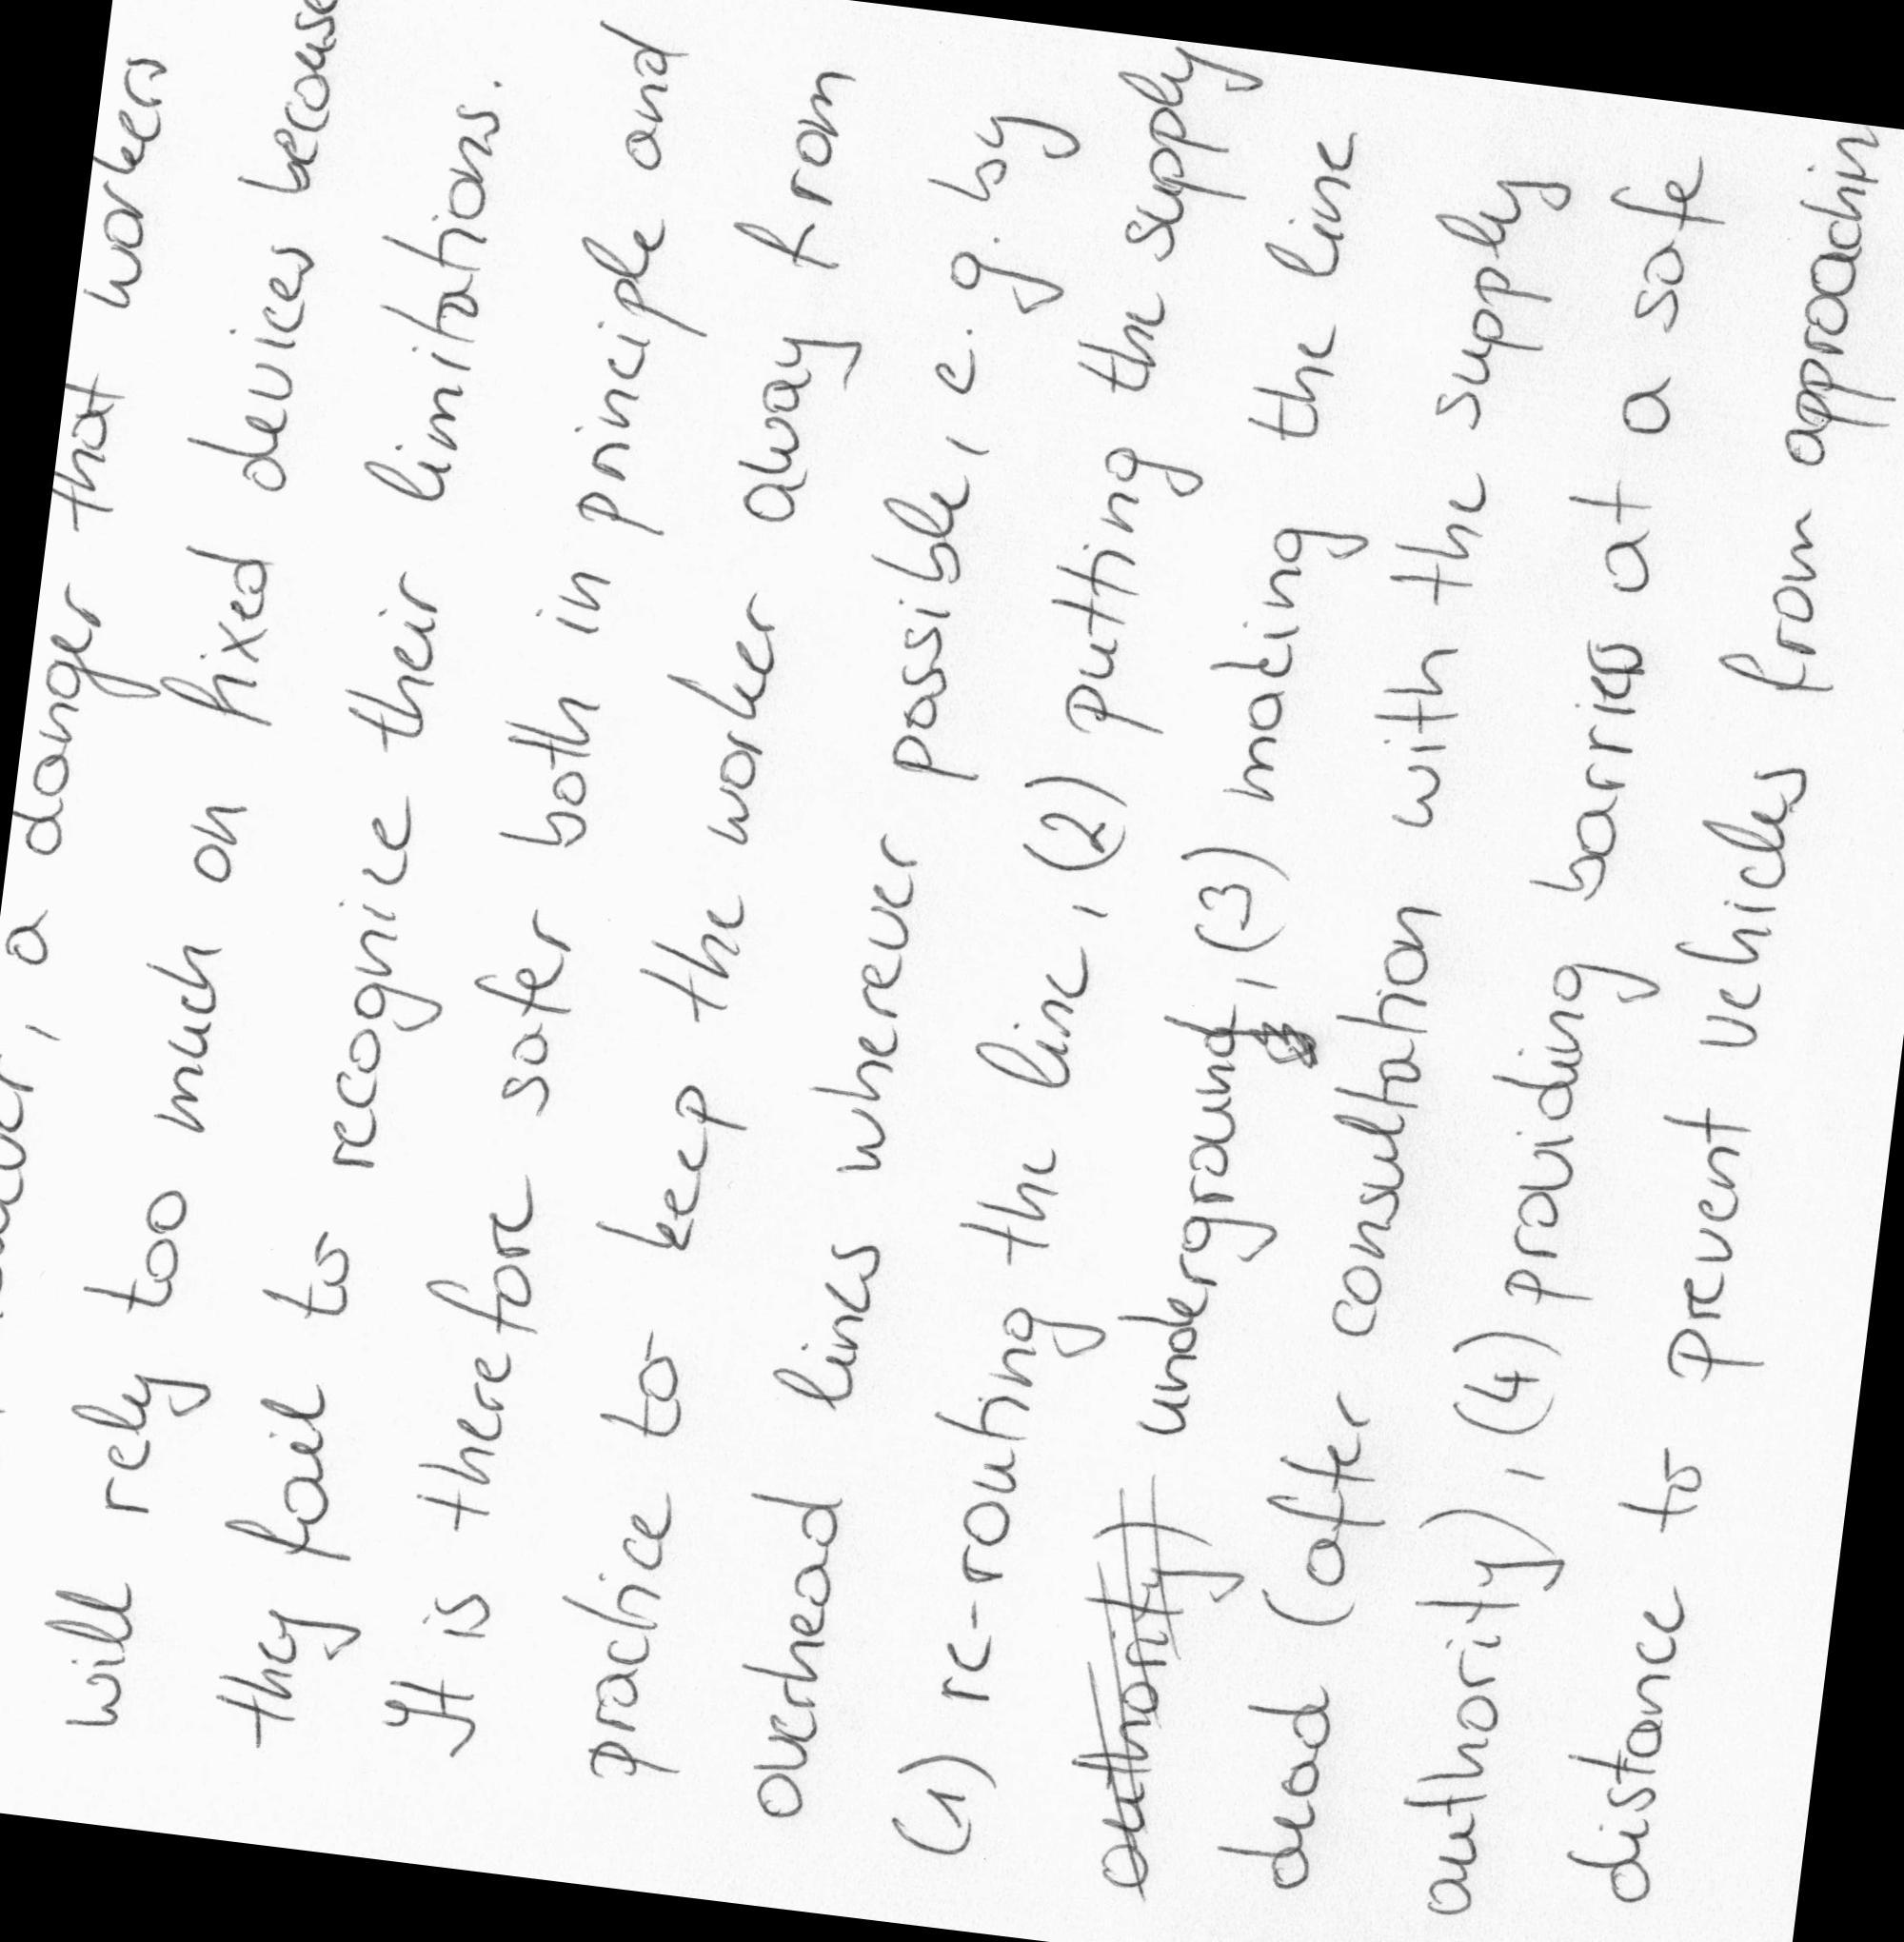 , a danger that workers
will rely too much on fixed devices because
they fail to recognize their limitations.
It is therefore safer both in principle and
practice to keep the worker away from
overhead lines wherever possible, e.g. by
(1) re-routing the line, (2) putting the supply
authority) underground, (3) making the line
dead (after consultation with the supply
authority), (4) providing barriers at a safe
distance to prevent vehicles from approachin